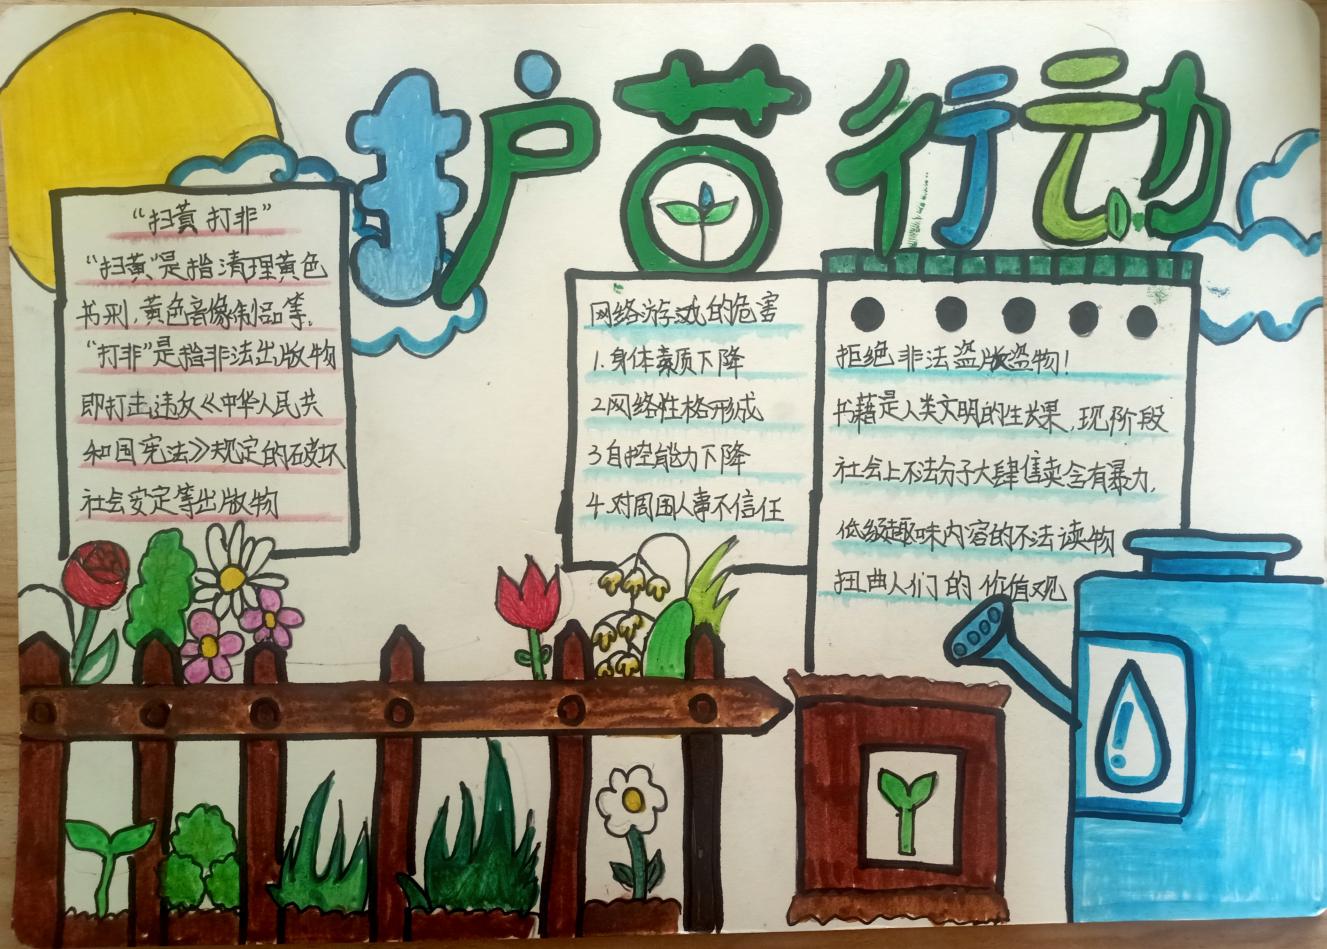 护苗行动
“扫黄打非”
“扫黄”是指清理黄色
书刊,黄色音像制品等。
“打非”是指非法出版物
即打击违反《中华人民共
和国宪法》规定的破坏
社会安定等出版物
网络游戏的危害
1.身体素质下降
2网络性格形成
3自控能力下降
4.对周围人事不信任
拒绝非法盗版盗物!
书籍是人类文明的性长果,现阶段
社会上不法分子大肆售卖含有暴力,
低级趣味内容的不法读物
扭曲人们的价值观